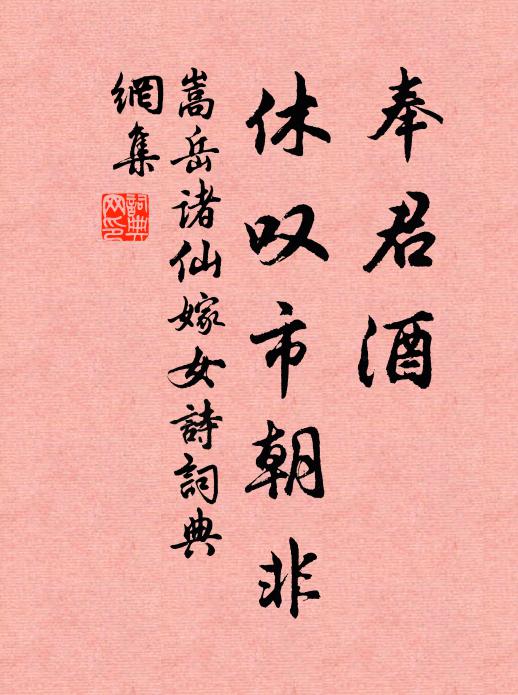 奉君酒
休叹市朝非
嵩岳诸仙嫁女詩詞典
網集
詞典
网印